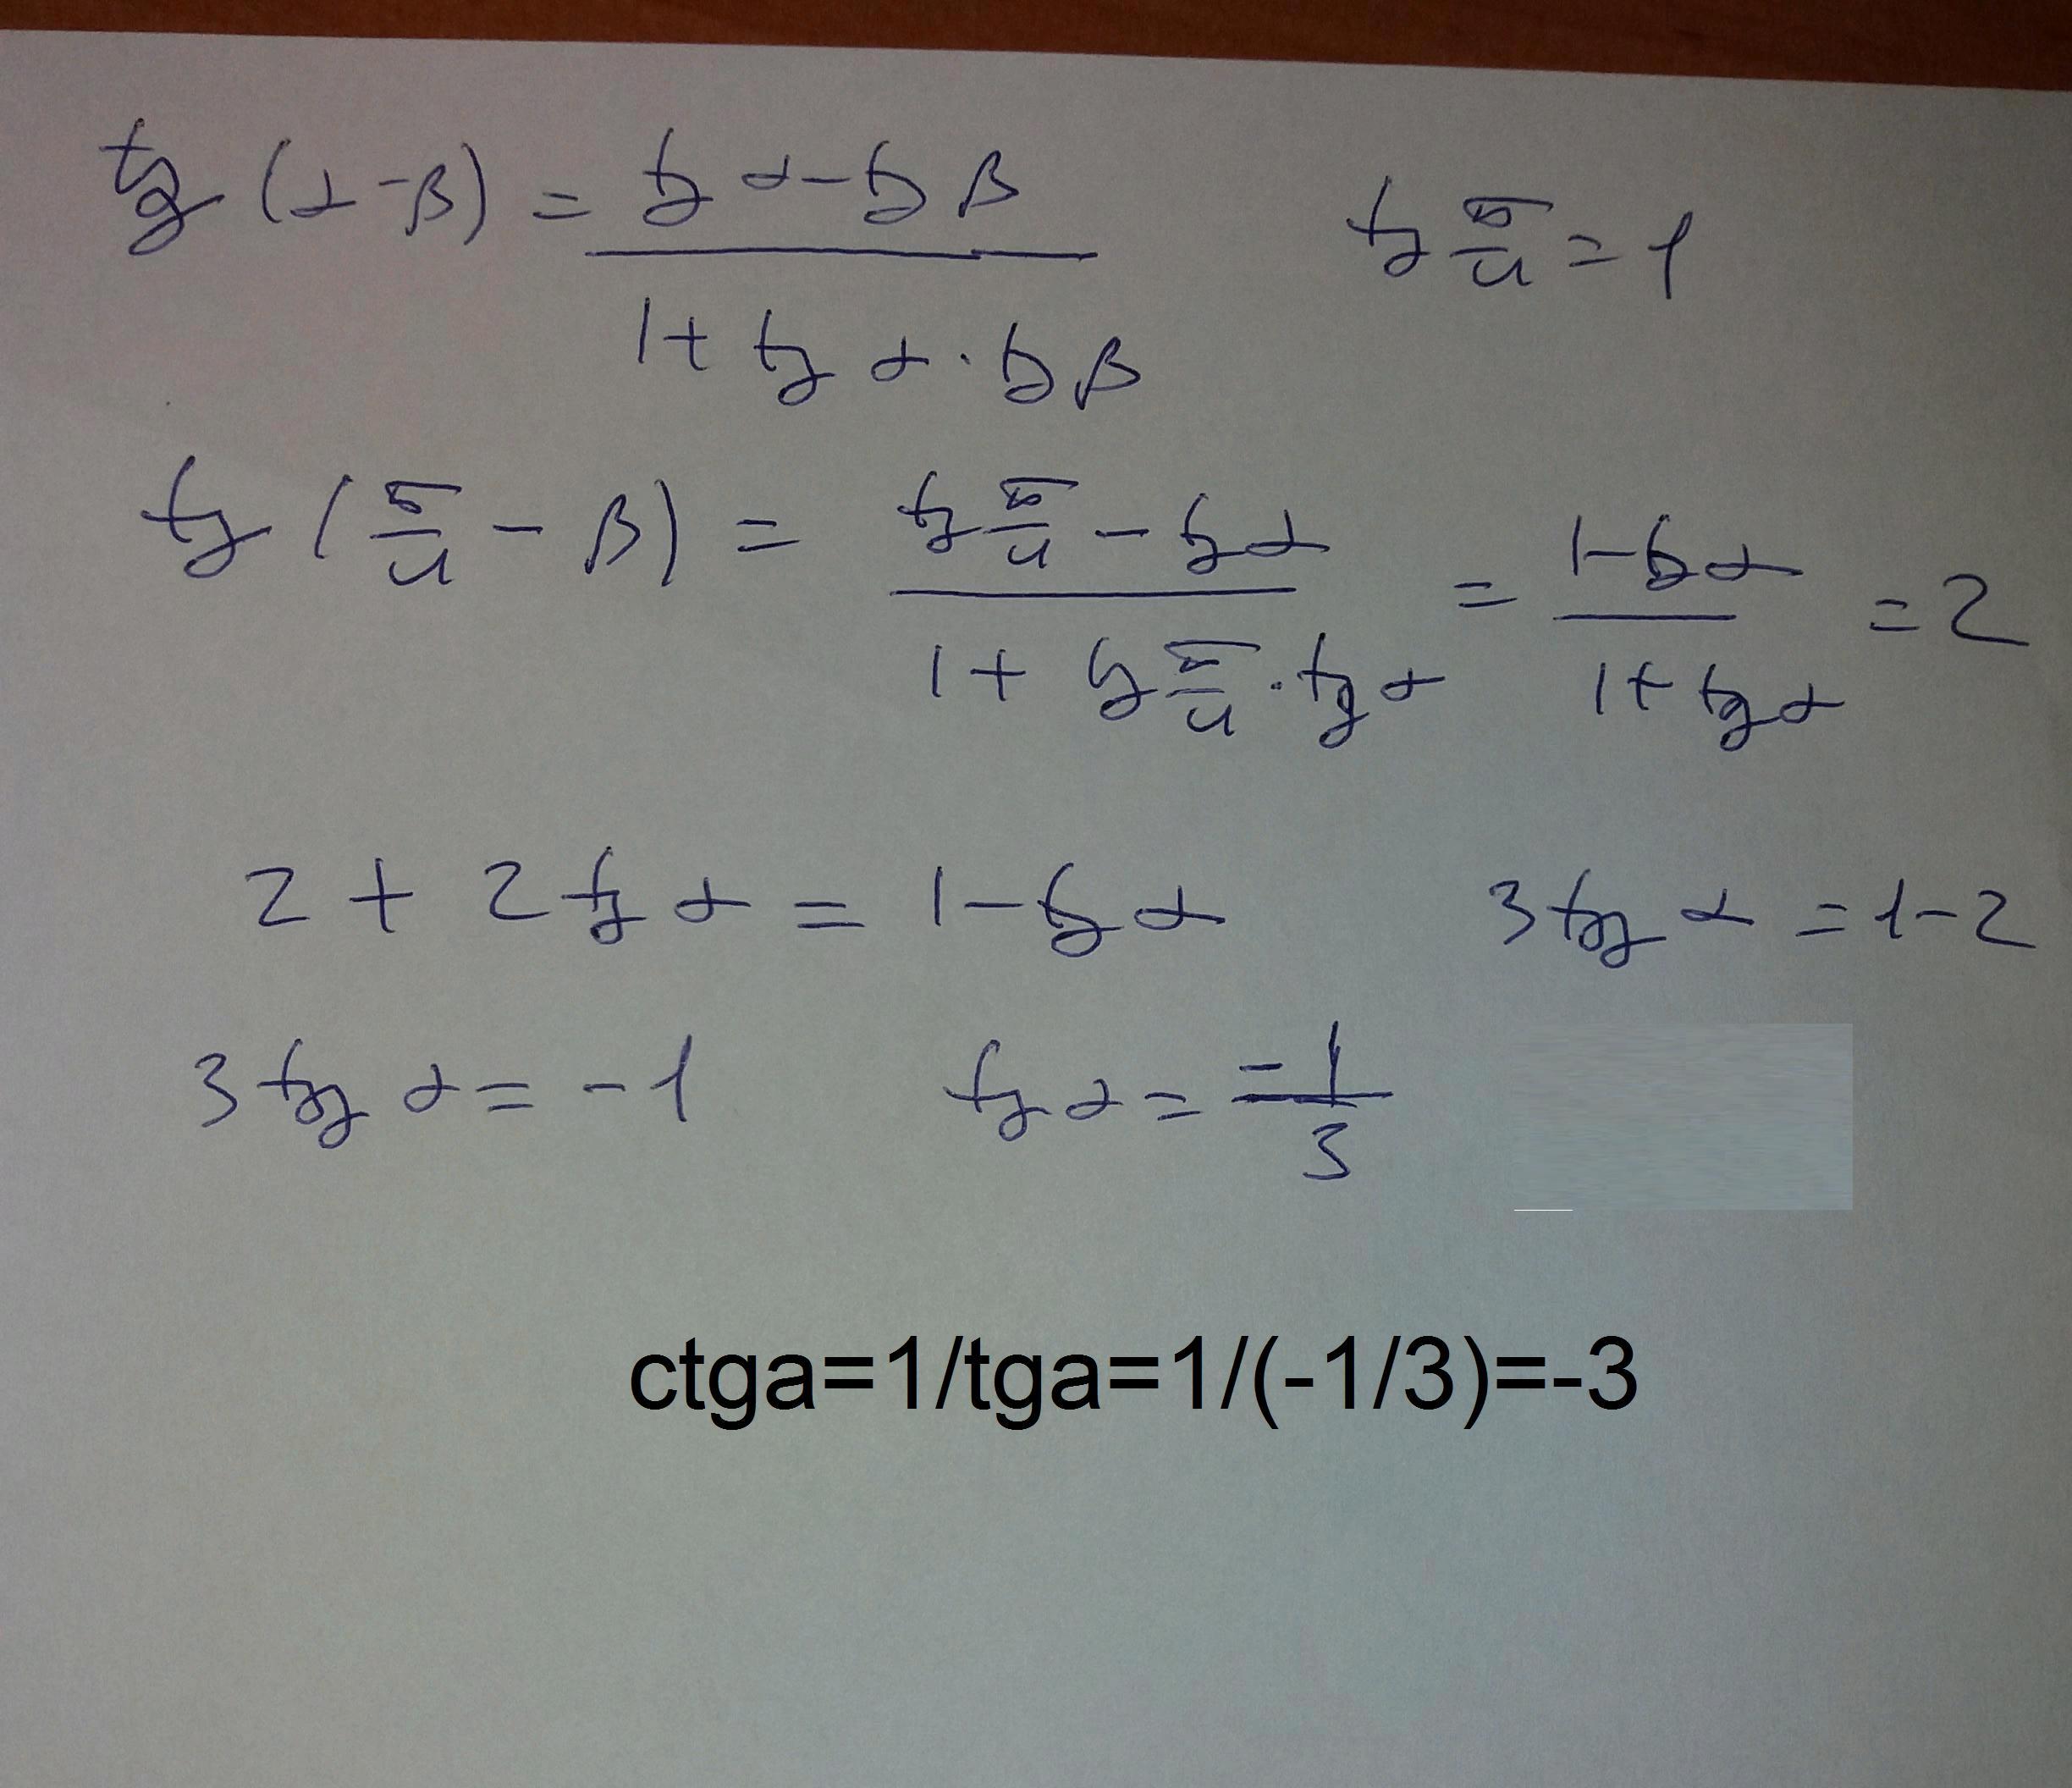 tg (α-β) = (tg α - tg β)/(1 + tg α · tg β)   tg π/4 = 1
tg (π/4 - β) = (tg π/4 - tg α)/(1 + tg π/4 · tg α) = (1 - tg α)/(1 + tg α) = 2
2 + 2 tg α = 1 - tg α   3 tg α = 1 - 2
3 tg α = -1   tg α = -1/3
ctga=1/tga=1/(-1/3)=-3